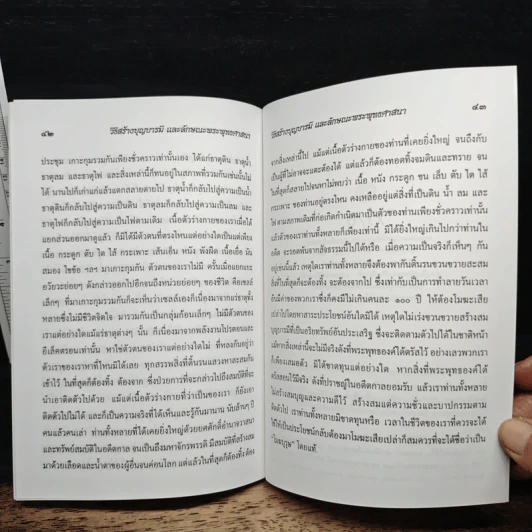 ๔๒ วิธีสร้างบุญบารมี และลักษณะพระพุทธศาสนา
ประชุม เกาะกุมรวมกันเพียงชั่วคราวเท่านั้นเอง ได้แก่ธาตุดิน ธาตุน้ำ
ธาตุลม และธาตุไฟ และสิ่งเหล่านี้ก็ทนอยู่ในสภาพที่รวมกันเช่นนั้นไม่
ได้ นานไปก็เก่าแก่แล้วแตกสลายตายไป ธาตุน้ำก็กลับไปสู่ความเป็นน้ำ
ธาตุดินก็กลับไปสู่ความเป็นดิน ธาตุลมก็กลับไปสู่ความเป็นลม และ
ธาตุไฟก็กลับไปสู่ความเป็นไฟตามเดิม เนื้อตัวร่างกายของเราเมื่อได้
แยกส่วนออกมาดูแล้ว ก็มิได้มีตัวตนที่ตรงไหนแต่อย่างใดเป็นแต่เพียง
เนื้อ กระดูก ตับ ไต ไส้ กระเพาะ เส้นเอ็น หนัง พังผืด เนื้อเยื่อ มัน
สมอง ไขข้อ ฯลฯ มาเกาะกุมกัน ตัวตนของเราไม่มี ครั้นเมื่อแยกแยะ
อวัยวะย่อยๆ ดังกล่าวออกไปอีกจนถึงหน่วยย่อยๆ ของชีวิต คือเซลล์
เล็กๆ ที่มาเกาะกุมรวมกันก็จะเห็นว่าเซลล์เองก็เนื่องมาจากแร่ธาตุทั้ง
หลายซึ่งไม่มีชีวิตจิตใจ มารวมกันเป็นกลุ่มก้อนเล็กๆ ไม่มีตัวตนของ
เราแต่อย่างใดแม้แร่ธาตุต่างๆ นั้น ก็เนื่องมาจากพลังงานโปรตอนและ
อีเล็คตรอนเท่านั้น หาใช่ตัวตนของเราแต่อย่างใดไม่ ที่หลงกันอยู่ว่า
ตัวเราของเราหาที่ไหนมิได้เลย ทุกสรรพสิ่งที่ดิ้นรนแสวงหาสะสมกัน
เข้าไว้ ในที่สุดก็ต้องทิ้ง ต้องจาก ซึ่งป่วยการที่จะกล่าวไปถึงสมบัติที่จะ
นำเอาติดตัวไปด้วย แม้แต่เนื้อตัวร่างกายที่ว่าเป็นของเรา ก็ยังเอา
ติดตัวไปไม่ได้ และก็เป็นความจริงที่ได้เห็นและรู้กันมานาน นับล้านๆ ปี
คนแล้วคนเล่า ท่านทั้งหลายที่ได้เคยยิ่งใหญ่ด้วยยศศักดิ์อำนาจวาสนา
และทรัพย์สมบัติในอดีตกาล จนเป็นถึงมหาจักรพรรดิ มีสมบัติที่สร้างสม
มาด้วยเลือดและน้ำตาของผู้อื่นจนค่อนโลก แต่แล้วในที่สุดก็ต้องทิ้ง ต้อง
วิธีสร้างบุญบารมี และลักษณะพระพุทธศาสนา ๔๓
จากสิ่งเหล่านี้ไป แม้แต่เนื้อตัวร่างกายของท่านที่เคยยิ่งใหญ่ จนถึงกับ
เป็นผู้ที่ไม่อาจจะแตะต้องได้ แต่แล้วก็ต้องทอดทิ้งจมดินและทราย จน
ในที่สุดก็สลายไปจนหาไม่พบว่า เนื้อ หนัง กระดูก ขน เล็บ ตับ ไต ไส้
กระเพาะ ของท่านอยู่ตรงไหน คงเหลืออยู่แต่สิ่งที่เป็นดิน น้ำ ลม และ
ไฟ ตามสภาพเดิมที่ก่อเกิดกำเนิดมาเป็นตัวของท่านเพียงชั่วคราวเท่านั้น
แล้วตัวของเราท่านทั้งหลายก็เพียงเท่านี้ มิได้ยิ่งใหญ่เกินไปกว่าท่านใน
อดีต จะรอดพ้นจากสัจธรรมนี้ไปได้หรือ เมื่อความเป็นจริงก็เห็นๆ กัน
อยู่เช่นนี้แล้ว เหตุใดเราท่านทั้งหลายจึงต้องพากันดิ้นรนขวนขวายสะสม
สิ่งที่ในที่สุดก็จะต้องทิ้ง จะต้องจากไป ซึ่งเท่ากับเป็นการทำลายวันเวลา
อันมีค่าของพวกเราซึ่งก็คงมีไม่เกินคนละ ๑๐๐ ปี ให้ต้องโมฆะเสีย
เปล่าไปโดยหาสาระประโยชน์อันใดมิได้ เหตุใดไม่เร่งขวนขวายสร้างสม
บุญบารมีที่เป็นอริยทรัพย์อันประเสริฐ ซึ่งจะติดตามตัวไปได้ในชาติหน้า
แม้หากสิ่งเหล่านี้จะไม่มีจริงดังที่พระพุทธองค์ได้ตรัสไว้ อย่างเลวพวกเรา
ก็เพียงเสมอตัว มิได้ขาดทุนแต่อย่างใด หากสิ่งที่พระพุทธองค์ได้
ตรัสสอนไว้มีจริง ดังที่ปราชญ์ในอดีตกาลยอมรับ แล้วเราท่านทั้งหลาย
ไม่สร้างสมบุญและความดีไว้ สร้างสมแต่ความชั่วและบาปกรรมตาม
ติดตัวไป เราท่านทั้งหลายมิขาดทุนหรือ เวลาในชีวิตของเราที่ควรจะได้
ใช้ให้เป็นประโยชน์กลับต้องมาโมฆะเสียเปล่าก็สมควรที่จะได้ชื่อว่าเป็น
"โมฆบุรุษ" โดยแท้